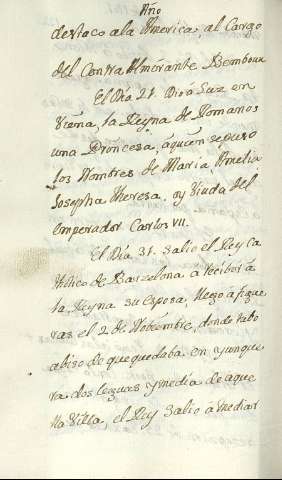 Año
destaco a la America, al Cargo
del Contra Almirante Bembou
El Dia 21. Dio a Luz en
Viena, la Reyna de Romanos
una Princesa, â quien se puso
los Nombres de Maria, Amelia
Josepha Theresa, oy Viuda del
emperador Carlos VII.
El Dia 31. Salio el Rey Ca
tholico de Barzelona â recibir â
la Reyna su esposa, llego â figue
ras el 2 de Nobiembre, donde tubo
abiso de que quedaba en yunque
ra dos leguas y media de aque
lla Villa, el Rey Salio â mediar